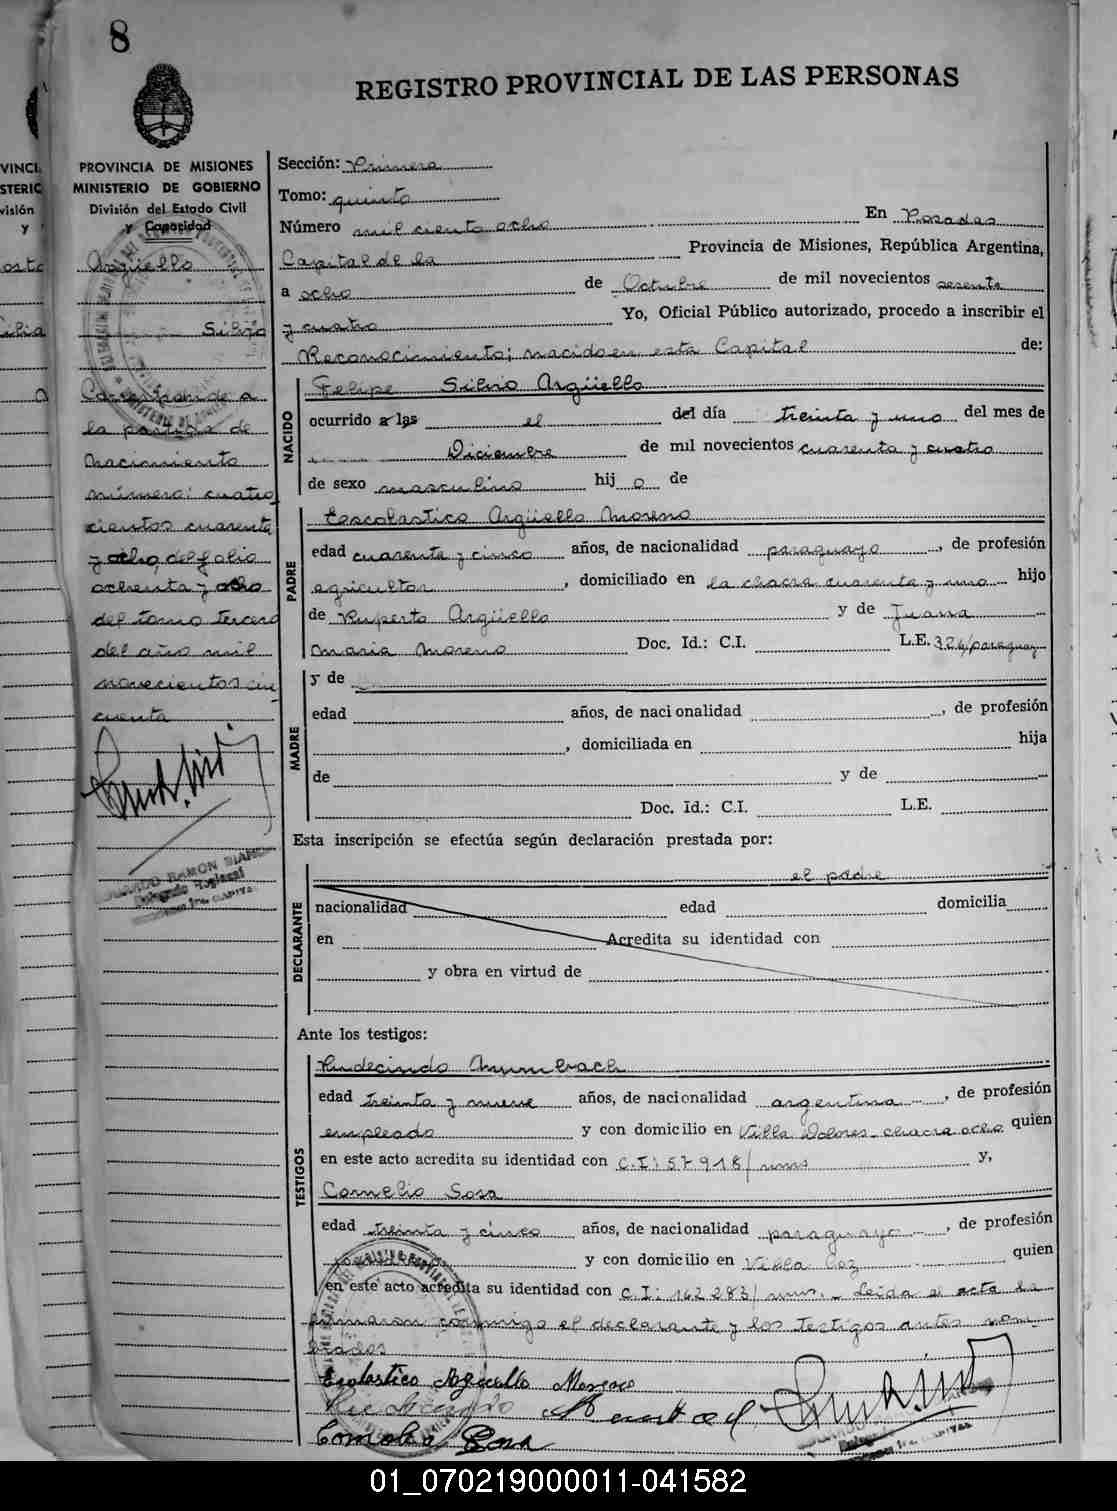 8
REGISTRO PROVINCIAL DE LAS PERSONAS
PROVINCIA DE MISIONES
MINISTERIO DE GOBIERNO
División del Estado Civil
y Capacidad
Argüello
Silvio
Corresponde a
la partida de
nacimiento
número: cuatro
cientos cuarenta
y ocho del folio
ochenta y ocho
del tomo tercero
del año mil
novecientos cin
cuenta
EDUARDO RAMON
Delegado Regional
Sección: Primera
Tomo: quinto
Número mil ciento ocho En Posadas
Capital de la Provincia de Misiones, República Argentina,
a ocho de Octubre de mil novecientos sesenta
y cuatro Yo, Oficial Público autorizado, procedo a inscribir el
Reconocimiento; nacido en esta Capital de:
NACIDO
Felipe Silvio Argüello
ocurrido a las el del día treinta y uno del mes de
Diciembre de mil novecientos cuarenta y cuatro
de sexo masculino hij o de
PADRE
Escolastico Argüello Moreno
edad cuarenta y cinco años, de nacionalidad paraguaya, de profesión
agricultor, domiciliado en la chacra cuarenta y uno hijo
de Ruperto Argüello y de Juana
Maria Moreno Doc. Id.: C.I. L.E. 326/paraguay
MADRE
y de
edad años, de nacionalidad, de profesión
, domiciliada en hija
de y de
Doc. Id.: C.I. L.E.
Esta inscripción se efectúa según declaración prestada por:
DECLARANTE
el padre
nacionalidad edad domicilia
en Acredita su identidad con
y obra en virtud de
Ante los testigos:
TESTIGOS
Rudecindo
edad treinta y nueve años, de nacionalidad argentina, de profesión
empleado y con domicilio en Villa Dolores chacra ocho quien
en este acto acredita su identidad con C.I: 57918/mns y,
Cornelio Sosa
edad treinta y cinco años, de nacionalidad paraguaya, de profesión
y con domicilio en Villa quien
en este acto acredita su identidad con C.I: 162283/mns. Leida el acta la
firmaron conmigo el declarante y los testigos antes nom
brados
Escolastico Argüello Moreno
01_070219000011-041582